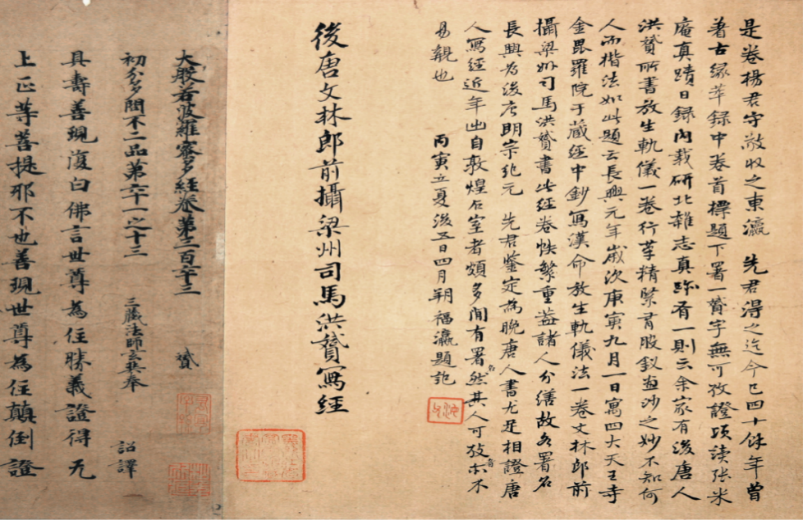 是卷楊君守敬收之東瀛 先君得之迄今已四十餘年曾
著古緣萃録中卷首標題下署一贇字無可攷證頃讀張米
庵真蹟日録內載研北雜志真跡有一則云余家有後唐人
洪贇所書放生軌儀一卷行草精緊有股釵畫沙之妙不知何
人而楷法如此題云長興元年歲次庚寅九月一日寫四大天王寺
金毘羅院于藏經中鈔寫漢命放生軌儀法一卷文林郎前
攝梁州司馬洪贇書此經卷帙繁重蓋諸人分繕故各署名
長興為後唐明宗紀元 先君鑒定為晚唐人書尤足相證唐
人寫經近年出自敦煌石室者頗多間有署者然其人可攷者亦不
易覯也 丙寅立夏後五日四月朔福瀛題記
後唐文林郎前攝梁州司馬洪贇寫經
大般若波羅蜜多經卷第三百六十三 贇
初分多問不二品第六十一之十三 三藏法師玄奘奉 詔譯
具壽善現復白佛言世尊為住勝義證得无
上正等菩提耶不也善現世尊為住顛倒證